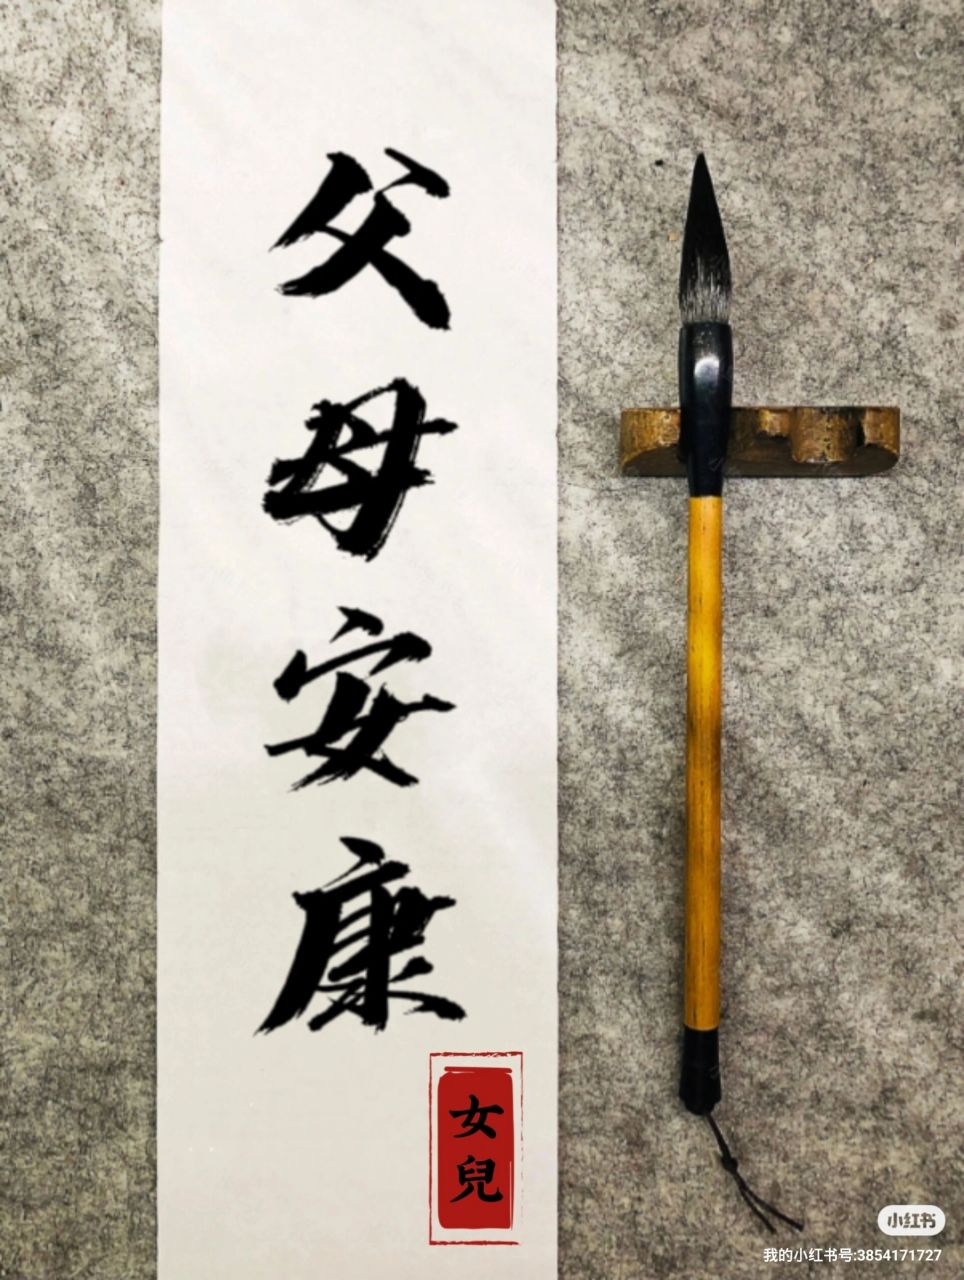 父母安康
女兒
小红书
我的小红书号:3854171727